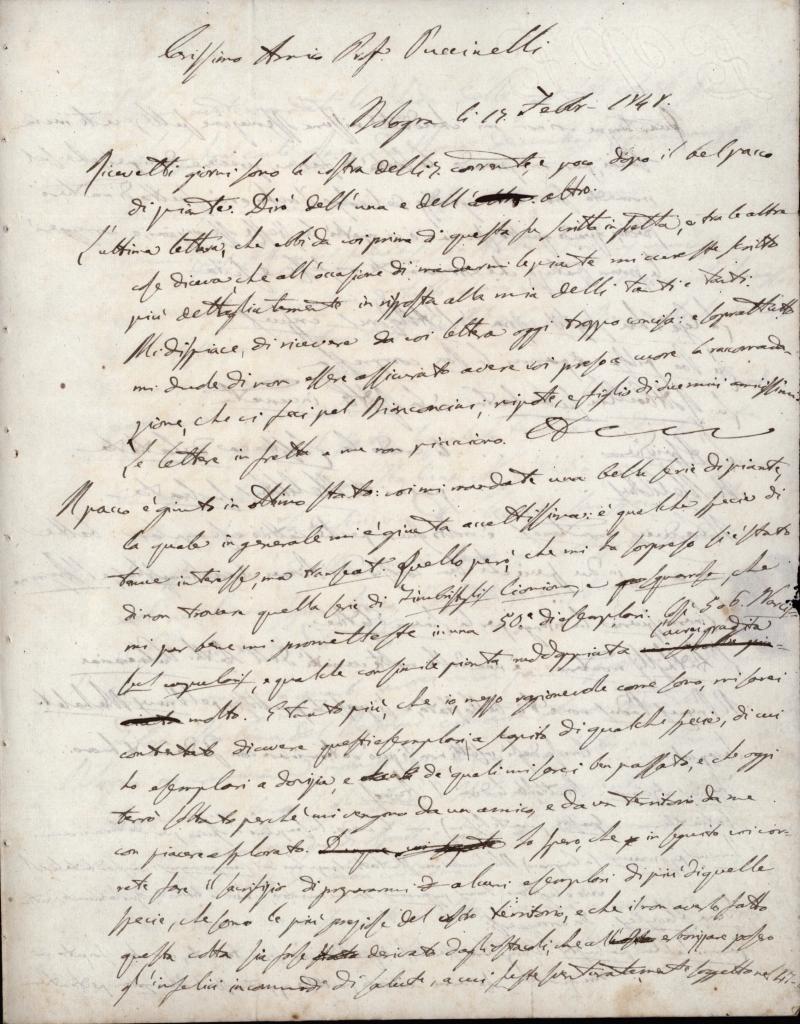 Carissimo Amico Prof. Puccinelli
Bologna li 17. Febbr. 1848.
Ricevetti giorni sono la vostra delli 7. corrente, e poco dopo il bel pacco
di piante. Dirò dell'una e dell' altro.
L'ultima lettera, che ebbi da voi prima di questa fu scritta in fretta, e tra le altre
cose diceva, che all'occasione di mandarmi le piante mi avreste scritto
più dettagliatamente in risposta alla mia delli tanti e tanti.
Mi dispiace, di ricevere da voi lettera oggi troppo concisa: e soprattutto
mi duole di non essere assicurato avere voi preso a cuore la raccomanda-
zione, che vi feci pel Bianconcini, nipote, e figlio di due miei amicissimi
Le lettere in fretta a me non piacciono.
Il pacco è giunto in ottimo stato: voi mi mandate una bella serie di piante,
la quale in generale mi è giunta accettissima: è qualche specie di
tenue interesse, ma transeat. Quello però, che mi ha sorpreso si è stato
di non trovare quella serie di Fimbristylis Cioniana, e, che
mi par bene mi prometteste in una 50.a di esemplari. Così 5 o 6.
e qualche consimile pianta raddoppiata l'avrei gradita
molto. E tanto più, che io, mezzo ragionevole come sono, mi sarei
contentato di avere questi esemplari, a scapito di qualche specie, di cui
ho esemplari a dovizia, e de' quali mi sarei ben passato, e che oggi
terrò soltanto perchè mi vengono da un amico, e da un territorio da me
con piacere esplorato. Io spero, che in seguito vor-
rete fare il sacrifizio di prepararmi alcuni esemplari di più di quelle
specie, che sono le più preziose del vostro territorio, e che il non averlo fatto
questa volta sia forse derivato dagli ostacoli, che all' erborizzare posero
gl'infelici incommodi di salute, a cui foste sventuratamente soggetto nel 47-